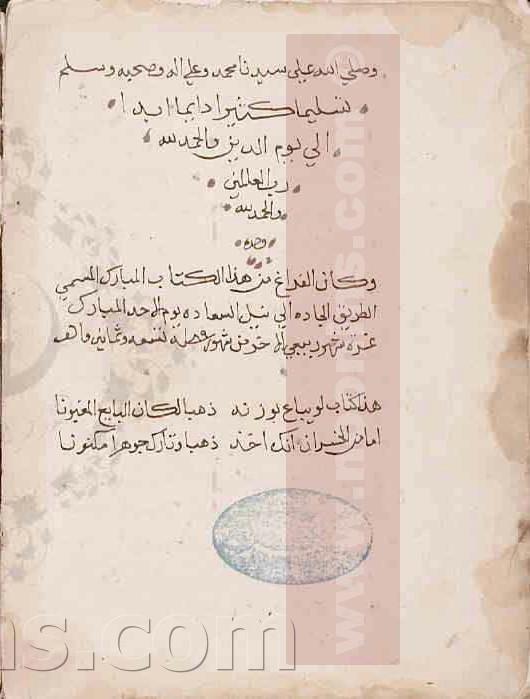 وصلي الله علي سيدنا محمد وعلي اله وصحبه وسلم
تسليما كثيرا دايما ابدا
الي يوم الدين والحمد لله
رب العالمين
والحمد لله
وحده
وكان الفراغ من هذا الكتاب المبارك المسمي
الطريق الجاده الي نيل السعاده يوم الاحد المبارك
غرة شهر ربيع الاخر من شهور سنة تسعه وثمانيه
هذا كتاب لو يباع بوزنه ذهبا لكان البايع المغبونا
اما من الخسران انك اخذ ذهبا وتارك جوهرا مكنونا
www.n
s.com
ns.com